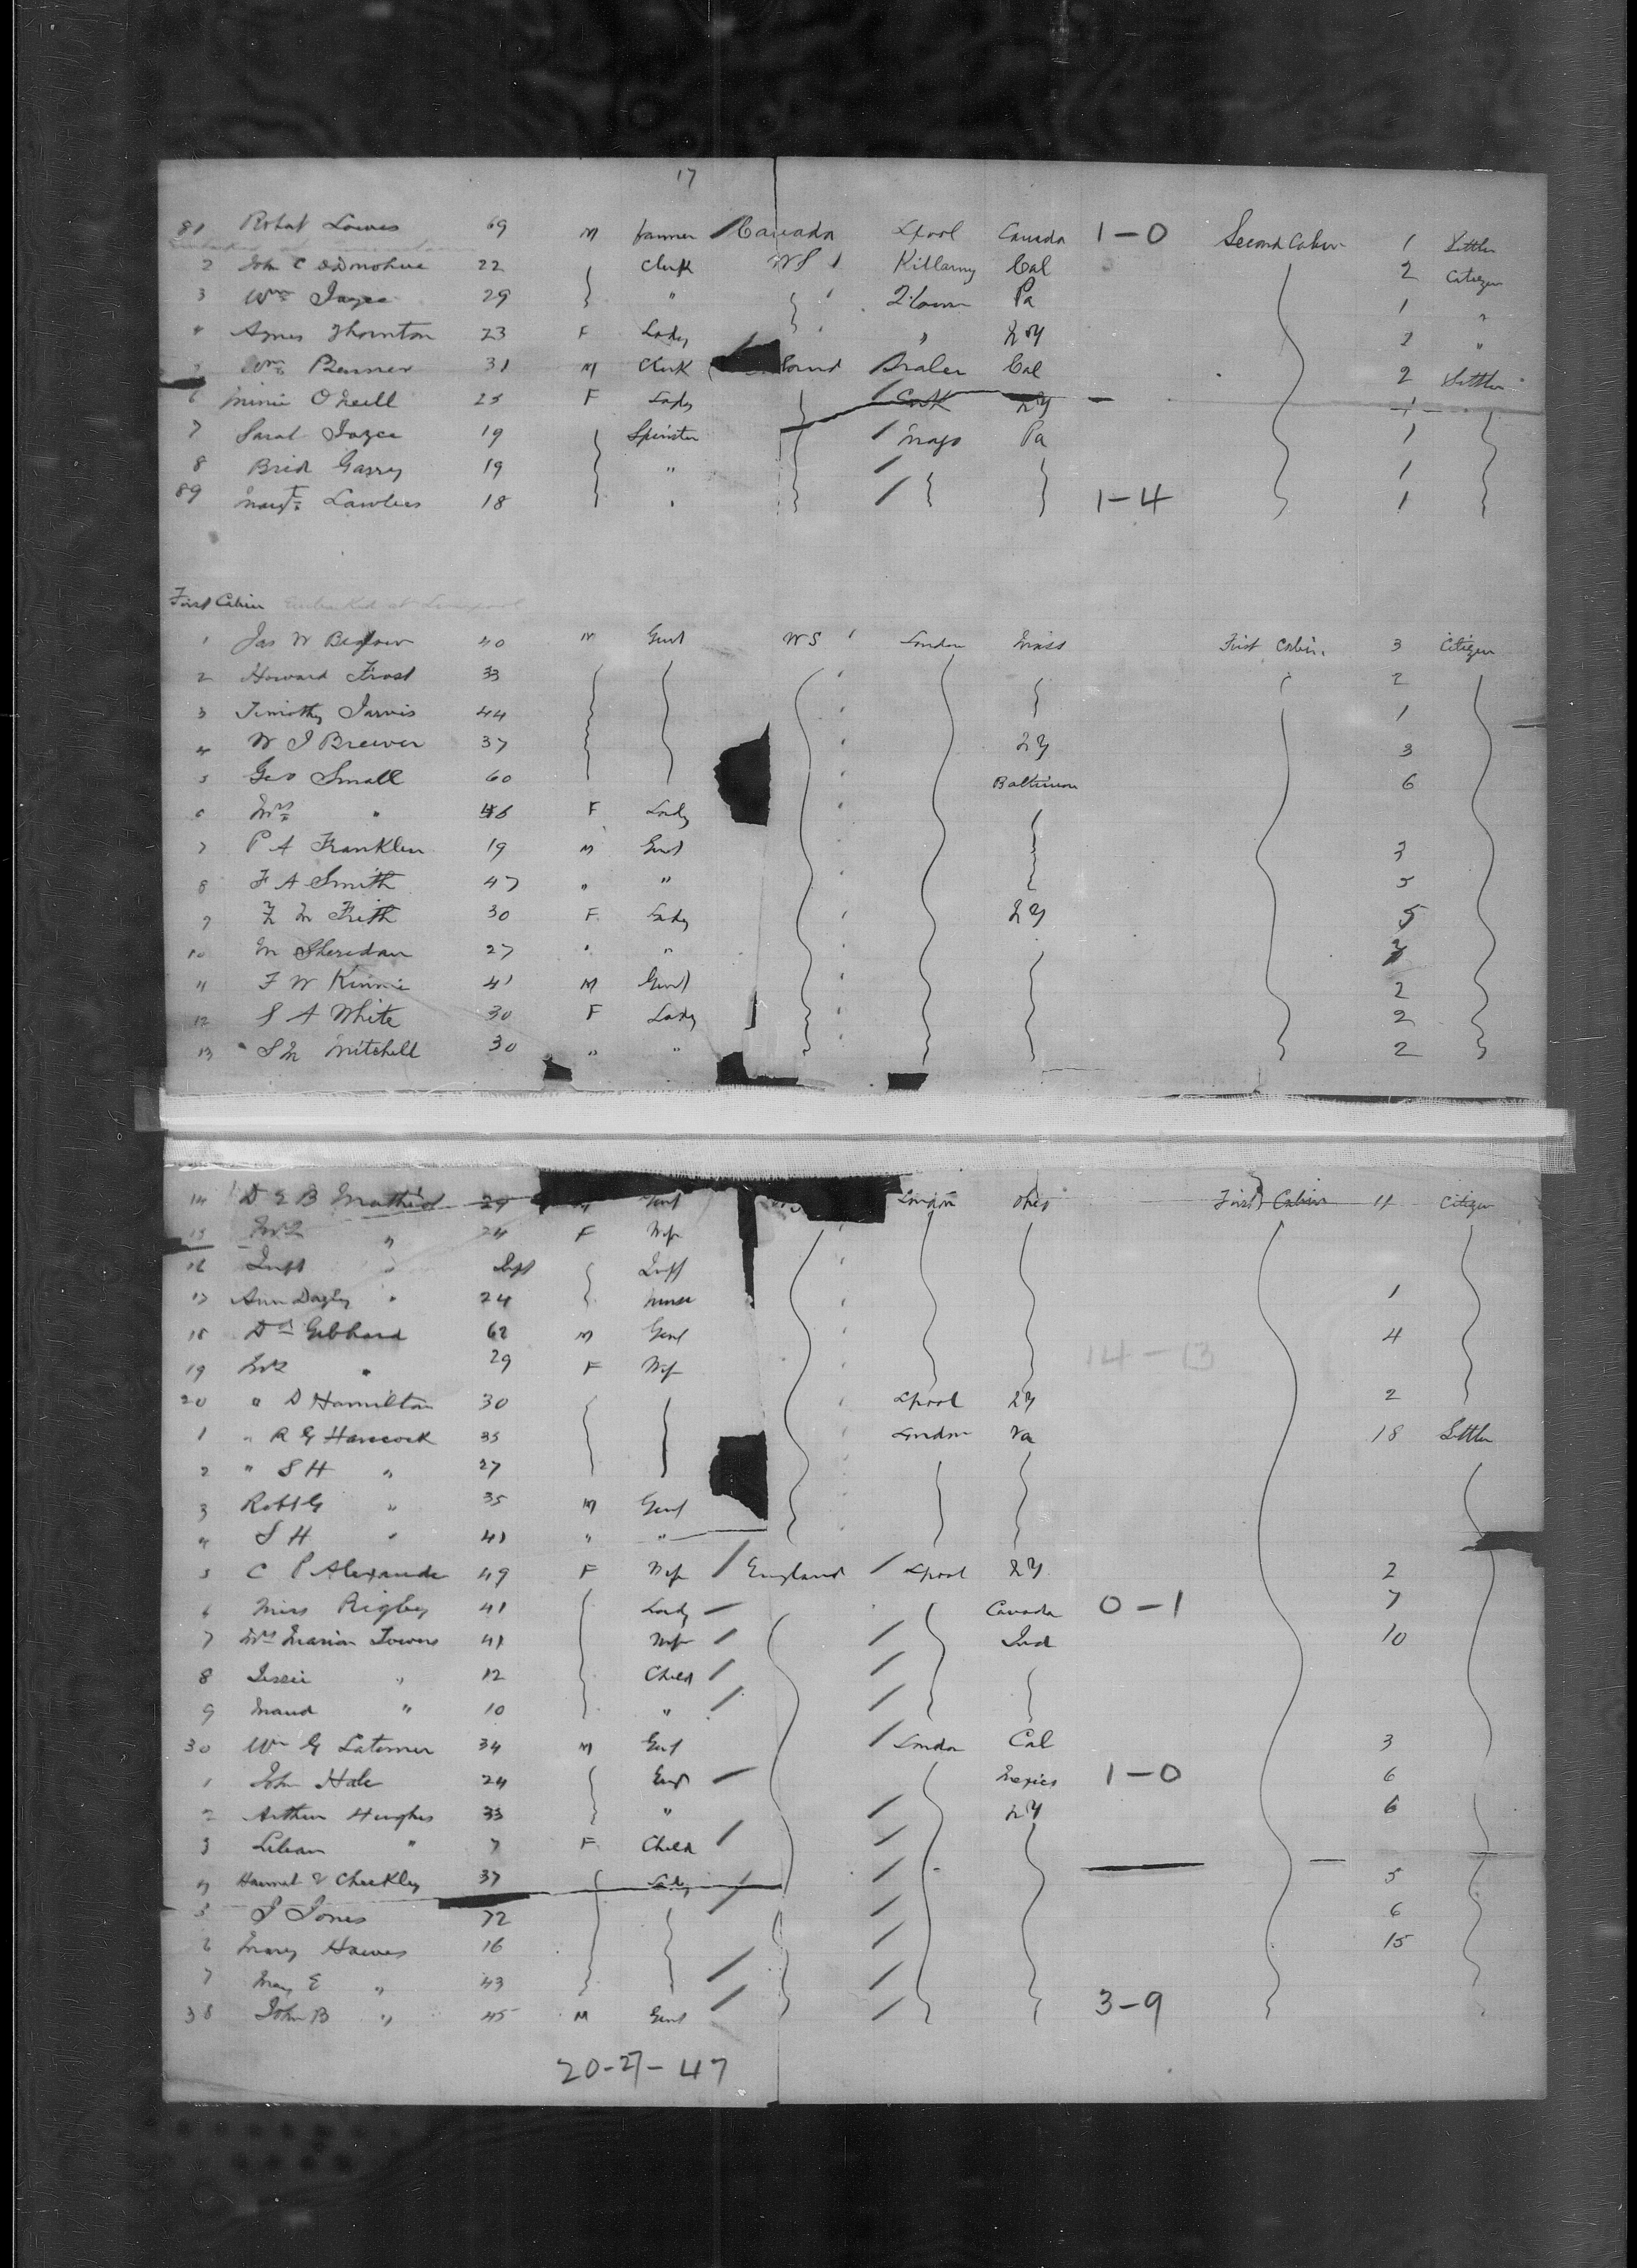 17
81 Robert Lowes 69 M farmer Canada Lpool Canada 1-0 Second Cabin 1 Settler
2 John C O'Donohue 22 Clerk US Killarny Cal 2 Citizen
3 Wm Joyce 29 " Q.town Pa 1 "
4 Agnes Thornton 23 F Lady " NY 2 "
5 Wm Benner 31 M Clerk Cal 2 Settler
6 Minnie O'Neill 25 F Lady Cork NY 1
7 Sarah Joyce 19 Spinster Mayo Pa 1
8 Brid Garry 19 " 1
89 Margt Lawless 18 " 1-4 1
First Cabin Embarked at Liverpool
1 Jas W Bigelow 40 M Gent US London Mass First Cabin 3 Citizen
2 Howard Frost 33 2
3 Timothy Jarvis 44 1
4 W J Brewer 37 NY 3
5 Geo Small 60 Baltimore 6
6 Mrs " 46 F Lady
7 P A Franklin 19 M Gent 3
8 F A Smith 47 " " 5
9 M Frith 30 F Lady NY 5
10 M Sheridan 27 " "
11 F W Kinnie 41 M Gent 2
12 S A White 30 F Lady 2
13 S M Mitchell 30 " " 2
14 D E B 29 Gent London Ohio First Cabin 4 Citizen
15 Mrs " 24 F Wife
16 Inft " Inft Inft
17 Ann Dagley " 24 Nurse 1
18 Dd Gebhard 62 M Gent 4
19 Mrs " 29 F Wife 14-13
20 " D Hamilton 30 Lpool NY 2
1 " R G Hancock 35 London Va 18 Settler
2 " S H " 27
3 Robt G " 35 M Gent
4 S H " 41 " "
5 C P Alexander 49 F Wife England Lpool NY 2
6 Miss Rigby 41 Lady Canada 0-1 7
7 Mrs Marion Towers 41 Wife Ind 10
8 Jessie " 12 Child
9 Maud " 10 "
30 Wm G Latimer 34 M Gent London Cal 3
1 John Hale 24 Mexico 1-0 6
2 Arthur Hughes 33 " NY 6
3 Lilian " 7 F Child
4 Hannah E Checkley 37 Lady 5
5 J Jones 72 6
6 Mary Hawes 16 15
7 Mary E " 43
38 John B " 45 M Gent 3-9
20-27-47